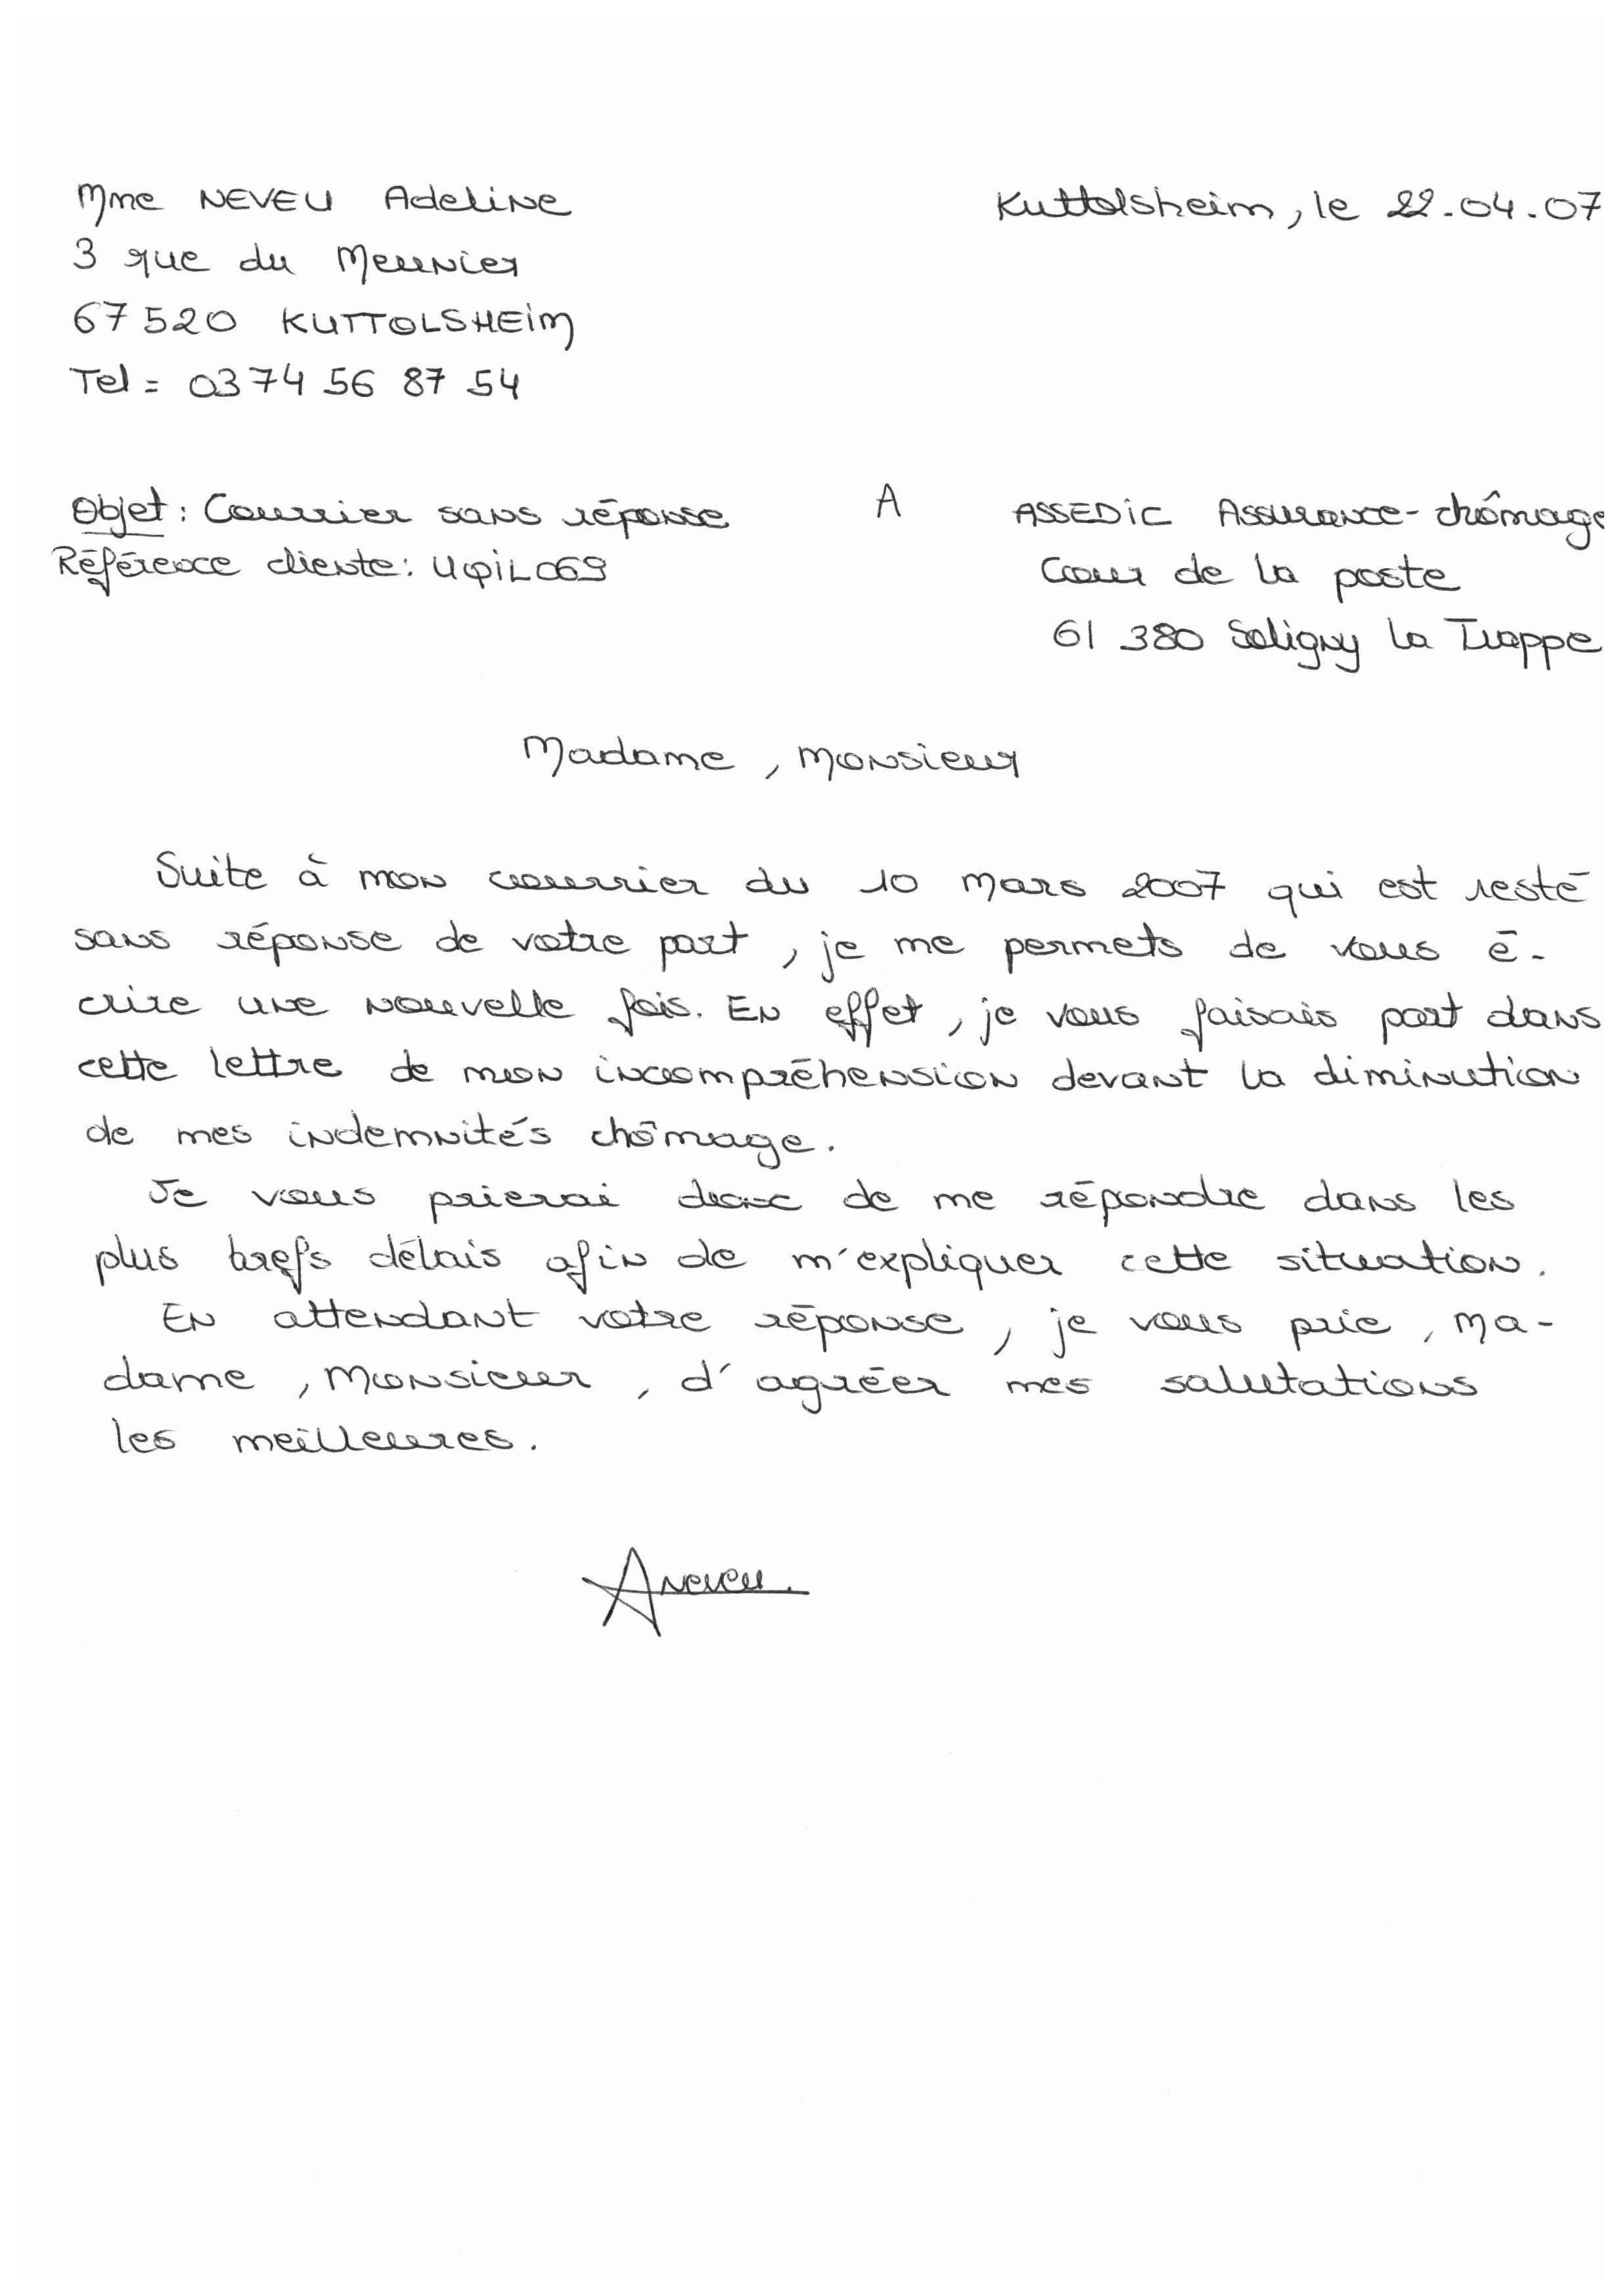 Mme NEVEU Adeline
Kuttolsheim, le 22.04.07
3 rue du Meunier
67520 KUTTOLSHEIM
Tel = 03 74 56 87 54
Objet : Courrier sans réponse
A ASSEDIC Assurance-chômage
Référence cliente :
Cour de la poste
61 380 Soligny la Trappe
Madame, Monsieur
Suite à mon courrier du 10 mars 2007 qui est resté
sans réponse de votre part, je me permets de vous é-
crire une nouvelle fois. En effet, je vous faisais part dans
cette lettre de mon incompréhension devant la diminution
de mes indemnités chômage.
Je vous prierai donc de me répondre dans les
plus brefs délais afin de m'expliquer cette situation.
En attendant votre réponse, je vous prie, Ma-
dame, Monsieur, d'agréer mes salutations
les meilleures.
ANeveu